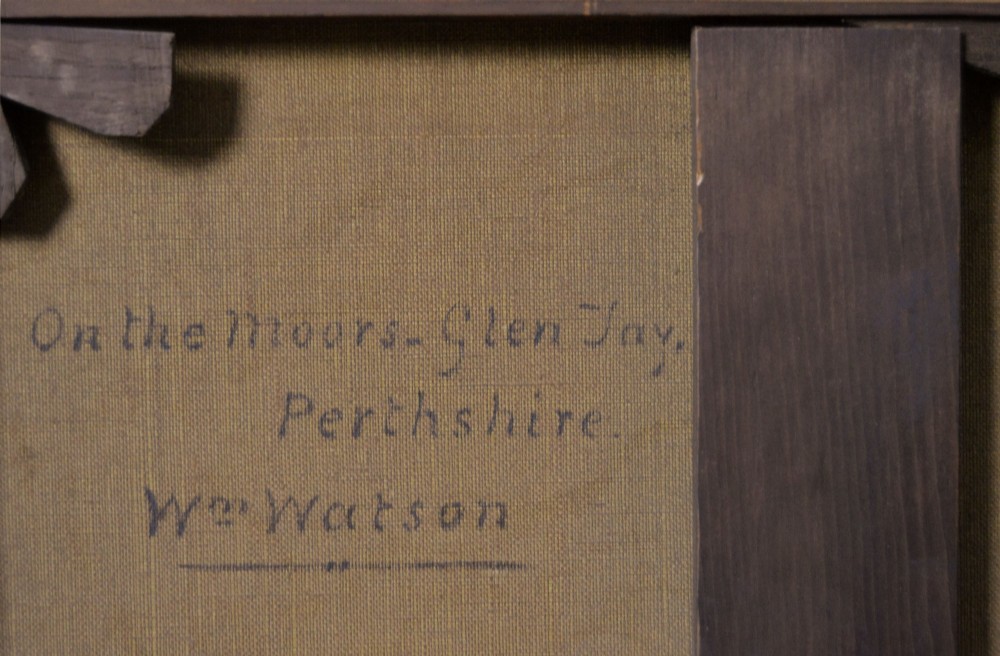 On the Moors - Glen Tay,
Perthshire.
Wm Watson